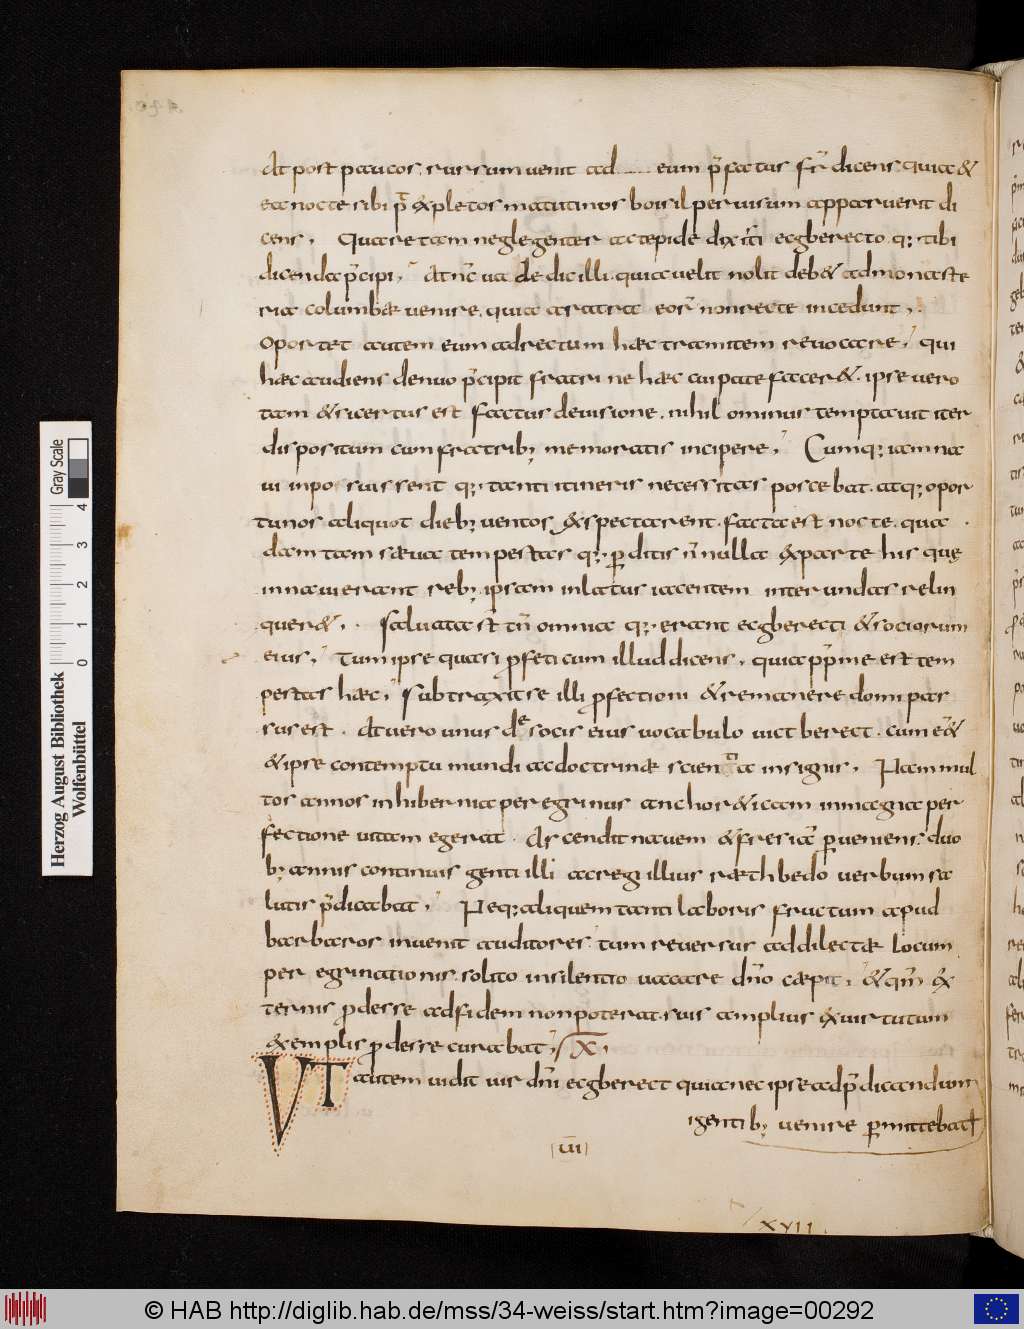 At post paucos rursum venit ad eum p̄fatus fr̄ dicens quia &
ea nocte sibi p̄ expletos matutinos boisil per uisum apparuerit di
cens, Quare tam neglegenter ac tepide dixisti ecgberecto q; tibi
dicenda p̄cipi, At nc̄ uade dic illi quia uelit nolit deb& ad monaste
ria columbæ uenire, quia aratra eor̄ non recte incedunt,
Oportet autem eum ad rectum hæc tramitem reuocare, qui
hæc audiens denuo p̄cipit fratri ne hæc cui patefacer&. ipse uero
tam & si certus est factus de uisione. nihil ominus temptauit iter
dispositum cum fratrib; memoratis incipere, Cumq; iam na
ui inposuissent q; tanti itineris necessitas poscebat. atq; opor
tunos aliquot dieb; uentos &spectarent. facta est nocte. qua
dam tam sæua tempestas q; p̱ditis ñ nulla exparte his quę
in naui erant reb; ipsam in latus iacentem inter undas relin
quer&, Saluata st̄ tn̄ omnia q; erant ecgberecti & sociorum
eius, Tum ipse quasi p̱feticum illud dicens, quia pp̄ me est tem
pestas hæc, subtraxit se illi p̱fectioni & remanere domi pas
sus est. At uero unus de socis eius uocabulo uictberect. cum e&
& ipse contemptu mundi ac doctrinæ scientia insignis, Nam mul
tos annos in hibernia peregrinus anchor&icam in magna per
fectione uitam egerat. Ascendit nauem & fresiā p̱ueniens. duo
b; annis continuis genti illi ac regi illius rathbedo uerbum sa
lutis p̄dicabat, Neq; aliquem tanti laboris fructum apud
barbaros inuenit auditores. tum reuersus ad dilectæ locum
peregrinationis. solito in silentio uacare dn̄o cæpit, & qm̄ ex
ternis p̱desse ad fidem non poterat. suis amplius ex uirtutum
exemplis p̱desse curabat, X,
UT autem uidit uir dn̄i ecgberect quia nec ipse ad p̄dicandum
gentib; uenire p̱mittebat
VII
XVII
Gray Scale
4
3
2
1
0
Herzog August Bibliothek
Wolfenbüttel
© HAB http://diglib.hab.de/mss/34-weiss/start.htm?image=00292